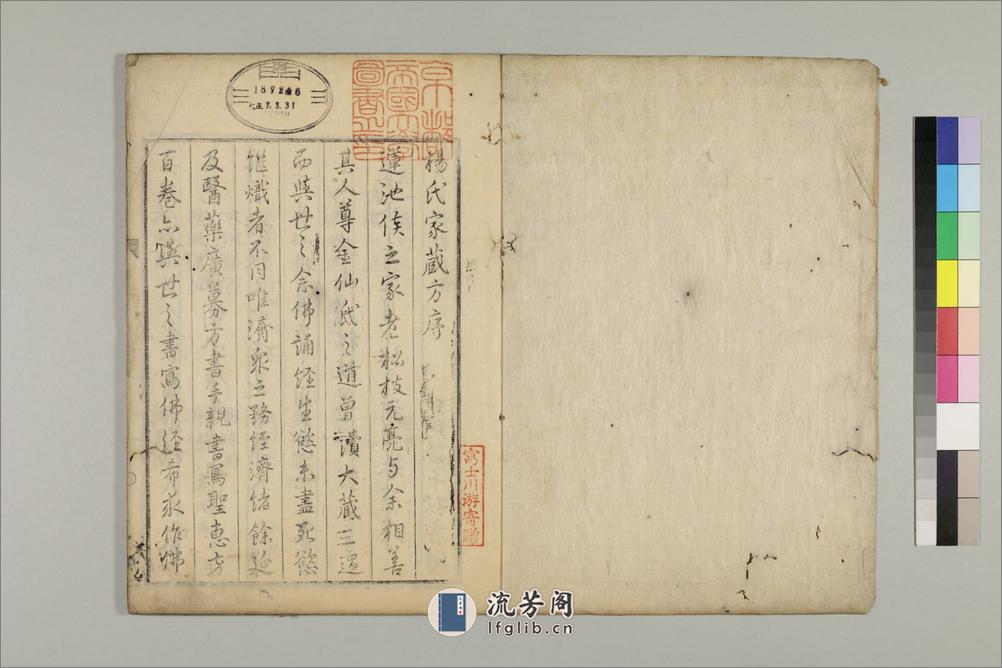 楊氏家蔵方序
蓮池侯之家老松枝元亮与余相善
其人尊金仙氏之道曾讀大蔵三過
而與世之念佛誦經生慾未盡死慾
継熾者不同唯濟眾之務經濟緒餘延
及醫藥廣募方書手親書寫聖惠方
百卷亦與世之書寫佛經希求作佛
京都
帝國大學
圖書之印
富士川游寄贈
187246
大正7.3.31
流芳阁
lfglib.cn